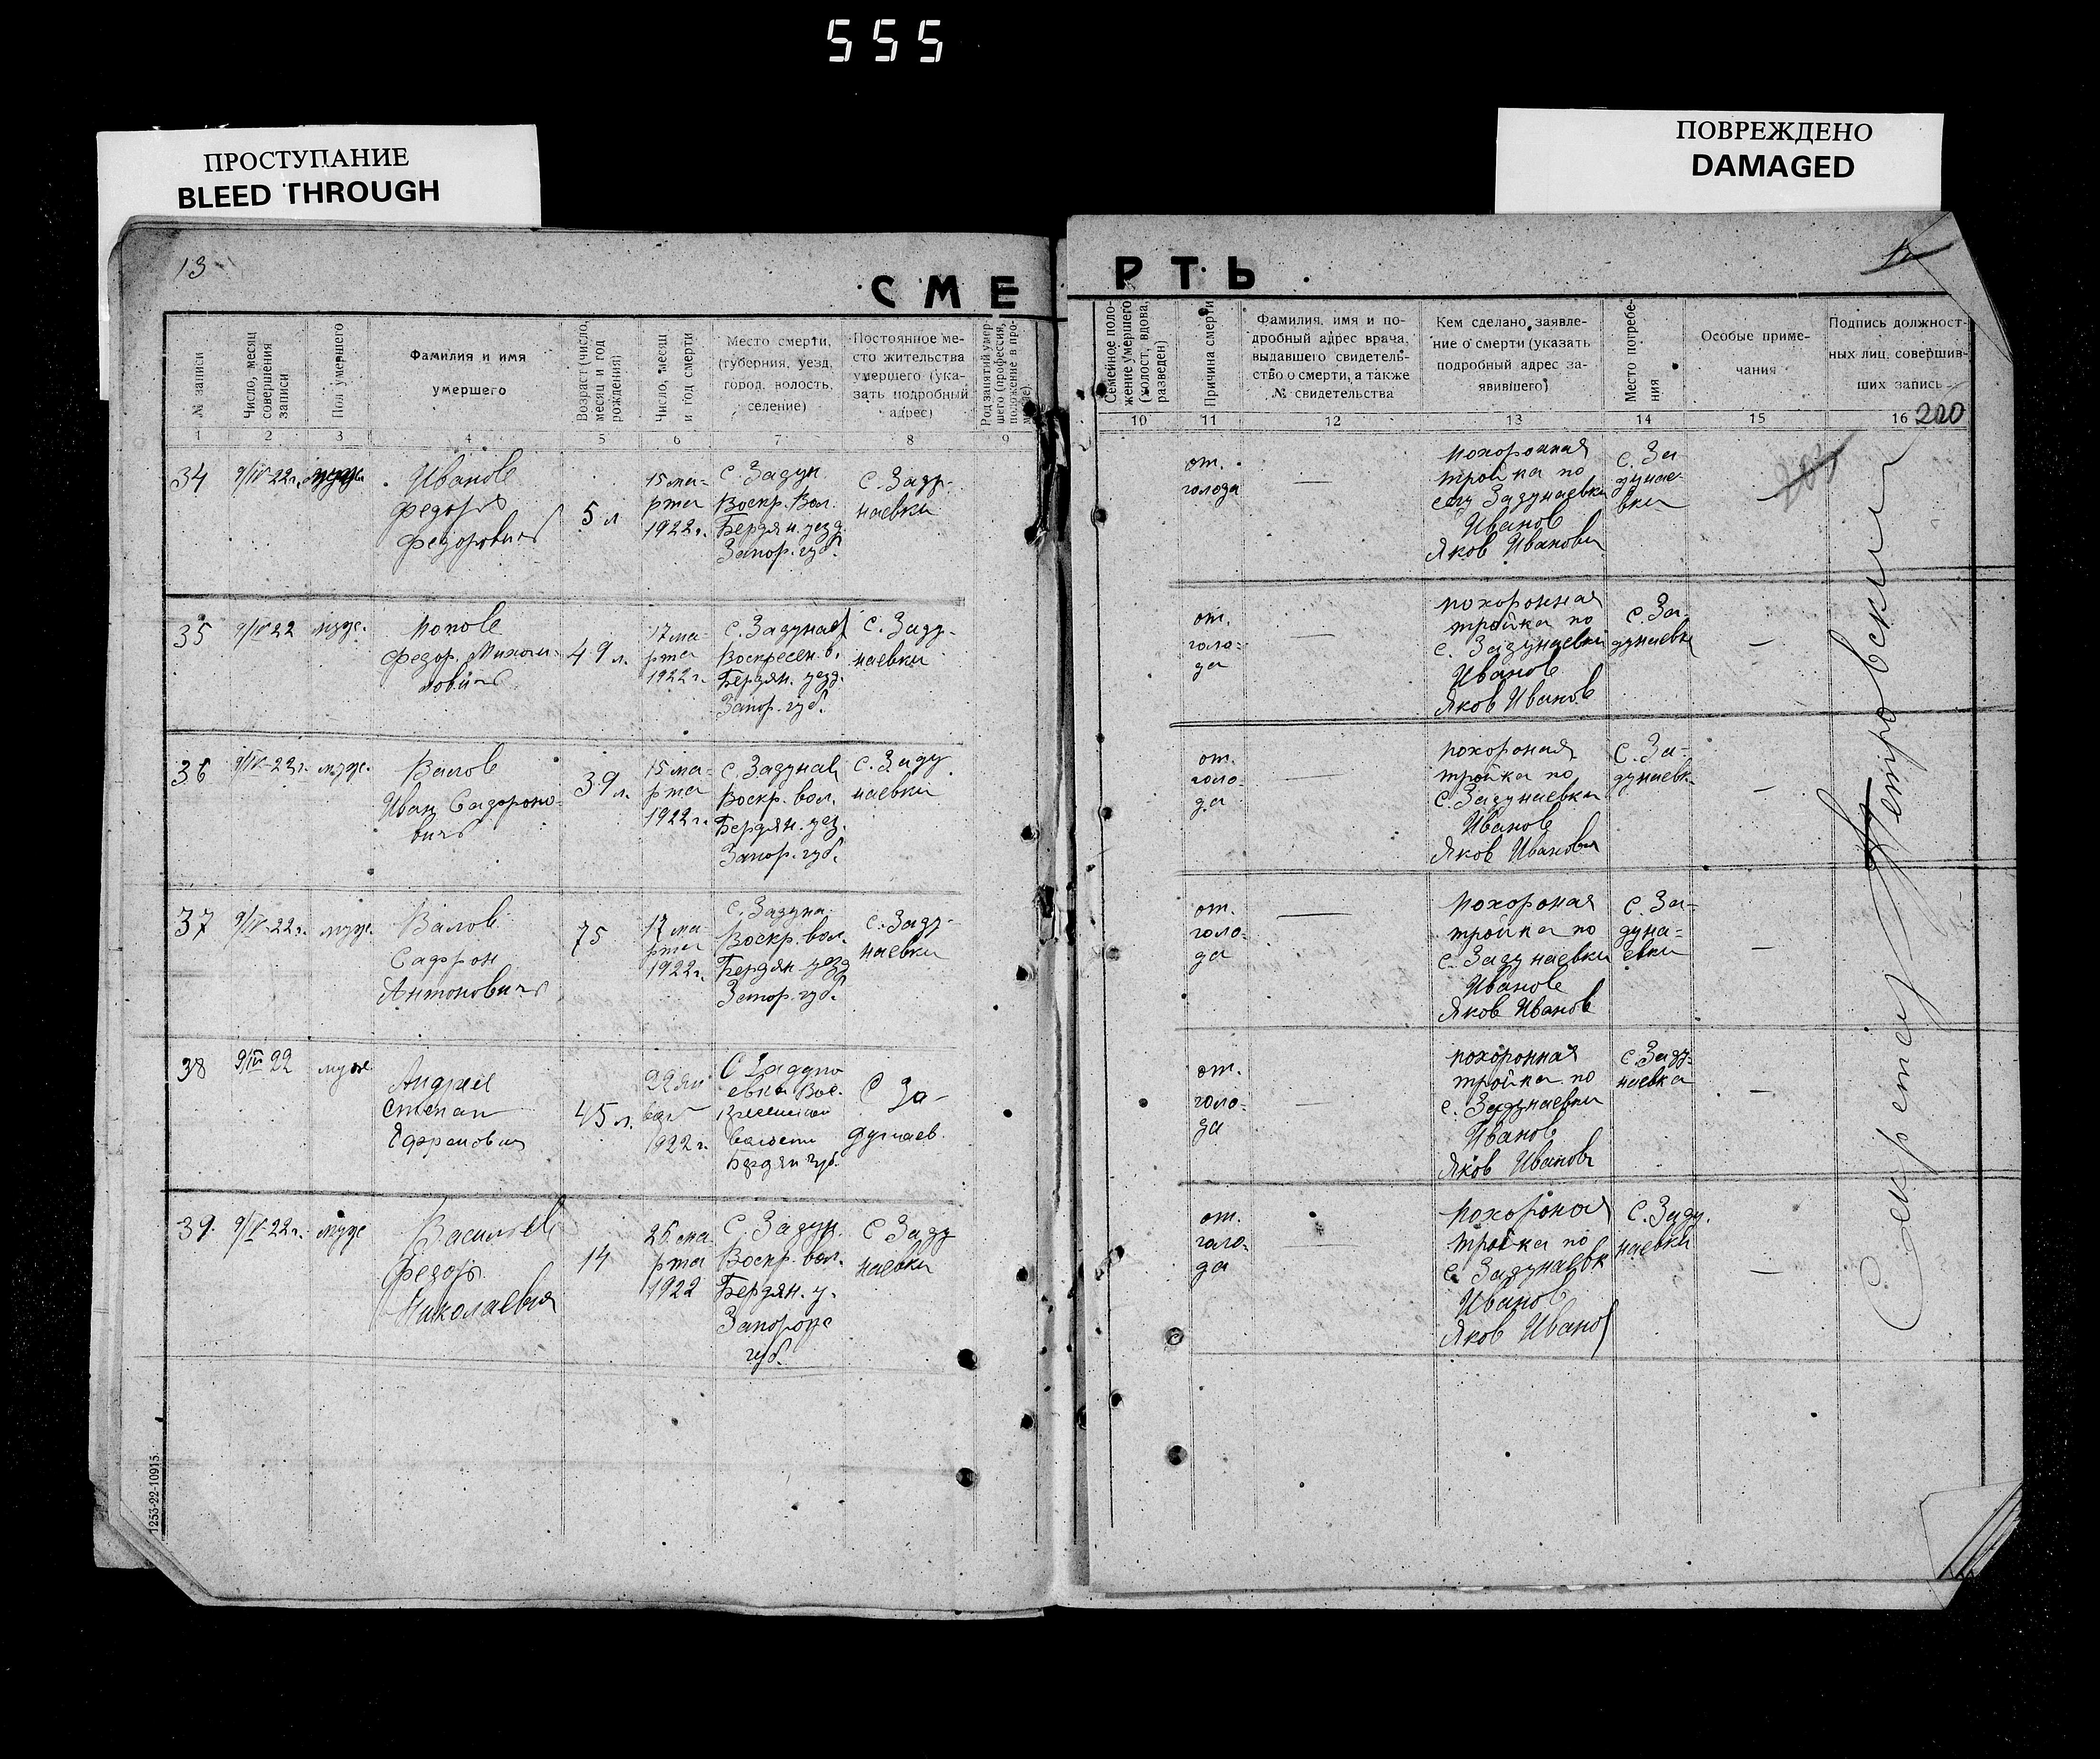 555
ПРОСТУПАНИЕ
BLEED THROUGH
ПОВРЕЖДЕНО
DAMAGED
13
СМЕРТЬ
№ записи
Число, месяц
совершения
записи
Пол умершего
Фамилия и имя
умершего
Возраст (число,
месяц и год
рождения)
Число, месяц
и год смерти
Место смерти,
(губерния, уезд,
город, волость,
селение)
Постоянное ме-
сто жительства
умершего (ука-
зать подробный
адрес)
Род занятий умер-
шего (профессия,
положение в про-
Семейное поло-
жение умершего
(холост, вдова,
разведен)
Причина смерти
Фамилия, имя и по-
дробный адрес врача,
выдавшего свидетель-
ство о смерти, а также
№ свидетельства
Кем сделано заявле-
ние о смерти (указать
подробный адрес за-
явившего)
Место погребе-
ния
Особые приме-
чания
Подпись должност-
ных лиц, соверши-
ших запись
1 2 3 4 5 6 7 8 9 10 11 12 13 14 15 16
200
203
34
9/IV-22г.
муж.
Иванов
Федор
Федорович
5 л
15 ма-
рта
1922 г.
с. Задун
Воскр. Вол.
Бердян. уезд
Запор. губ.
с. Заду-
наевки
от.
голода
—
похоронная
тройка по
селу Задунаевки
Иванов
Яков Иванович
с. За
дунае-
вки
35
9/IV 22
муж.
Попов
Федор. Михай-
лович
49 л.
17 ма-
рта
1922 г.
с. Задунаев
Воскресен. в.
Бердян. уезд.
Запор. губ.
с. Заду-
наевки
от.
голо-
да
—
похоронная
тройка по
с. Задунаевки
Иванов
Яков Иванов
с. За-
дунаевки
—
36
9/IV-22г.
муж.
Валов
Иван Сафроно-
вич
39 л.
15 ма-
рта
1922 г.
с. Задунав
Воскр. вол.
Бердян. уез.
Запор. губ.
с. Заду
наевки
от.
голо-
да
—
похороная
тройка по
с. Задунаевки
Иванов
Яков Иванович
с. За-
дунаевк.
—
37
9/IV-22г.
муж.
Валов
Сафрон
Антонович
75
17 ма-
рта
1922 г.
с. Задуна.
Воскр. вол.
Бердян. уезд
Запор. губ.
с. Заду-
наевки
от.
голо-
да
—
похороная
тройка по
с. Задунаевки
Иванов
Яков Иванов
с. За-
дуна-
евки
—
38
9/IV 22
муж
Степан
45 л.
22 ян
варя
1922 г.
С Задуна
евка Вос.
волости
Бердян губ.
С За-
дунаев.
от.
голо-
да
—
похоронная
тройка по
с. Задунаевки
Иванов
Яков Иванов
с. Заду-
наевка
—
39.
9/IV-22г.
муж
Васильев
Федор
Николаевич
14
25 ма
рта
1922
С. Задун.
Воскр. вол.
Бердян. у.
Запорож
губ.
с Заду
наевки
от.
голо-
да
—
похороная
тройка по
с Задунаевк
Иванов
Яков Иванов
с. Заду.
наевки
—
Секретарь Петровский
1253-22-10915.